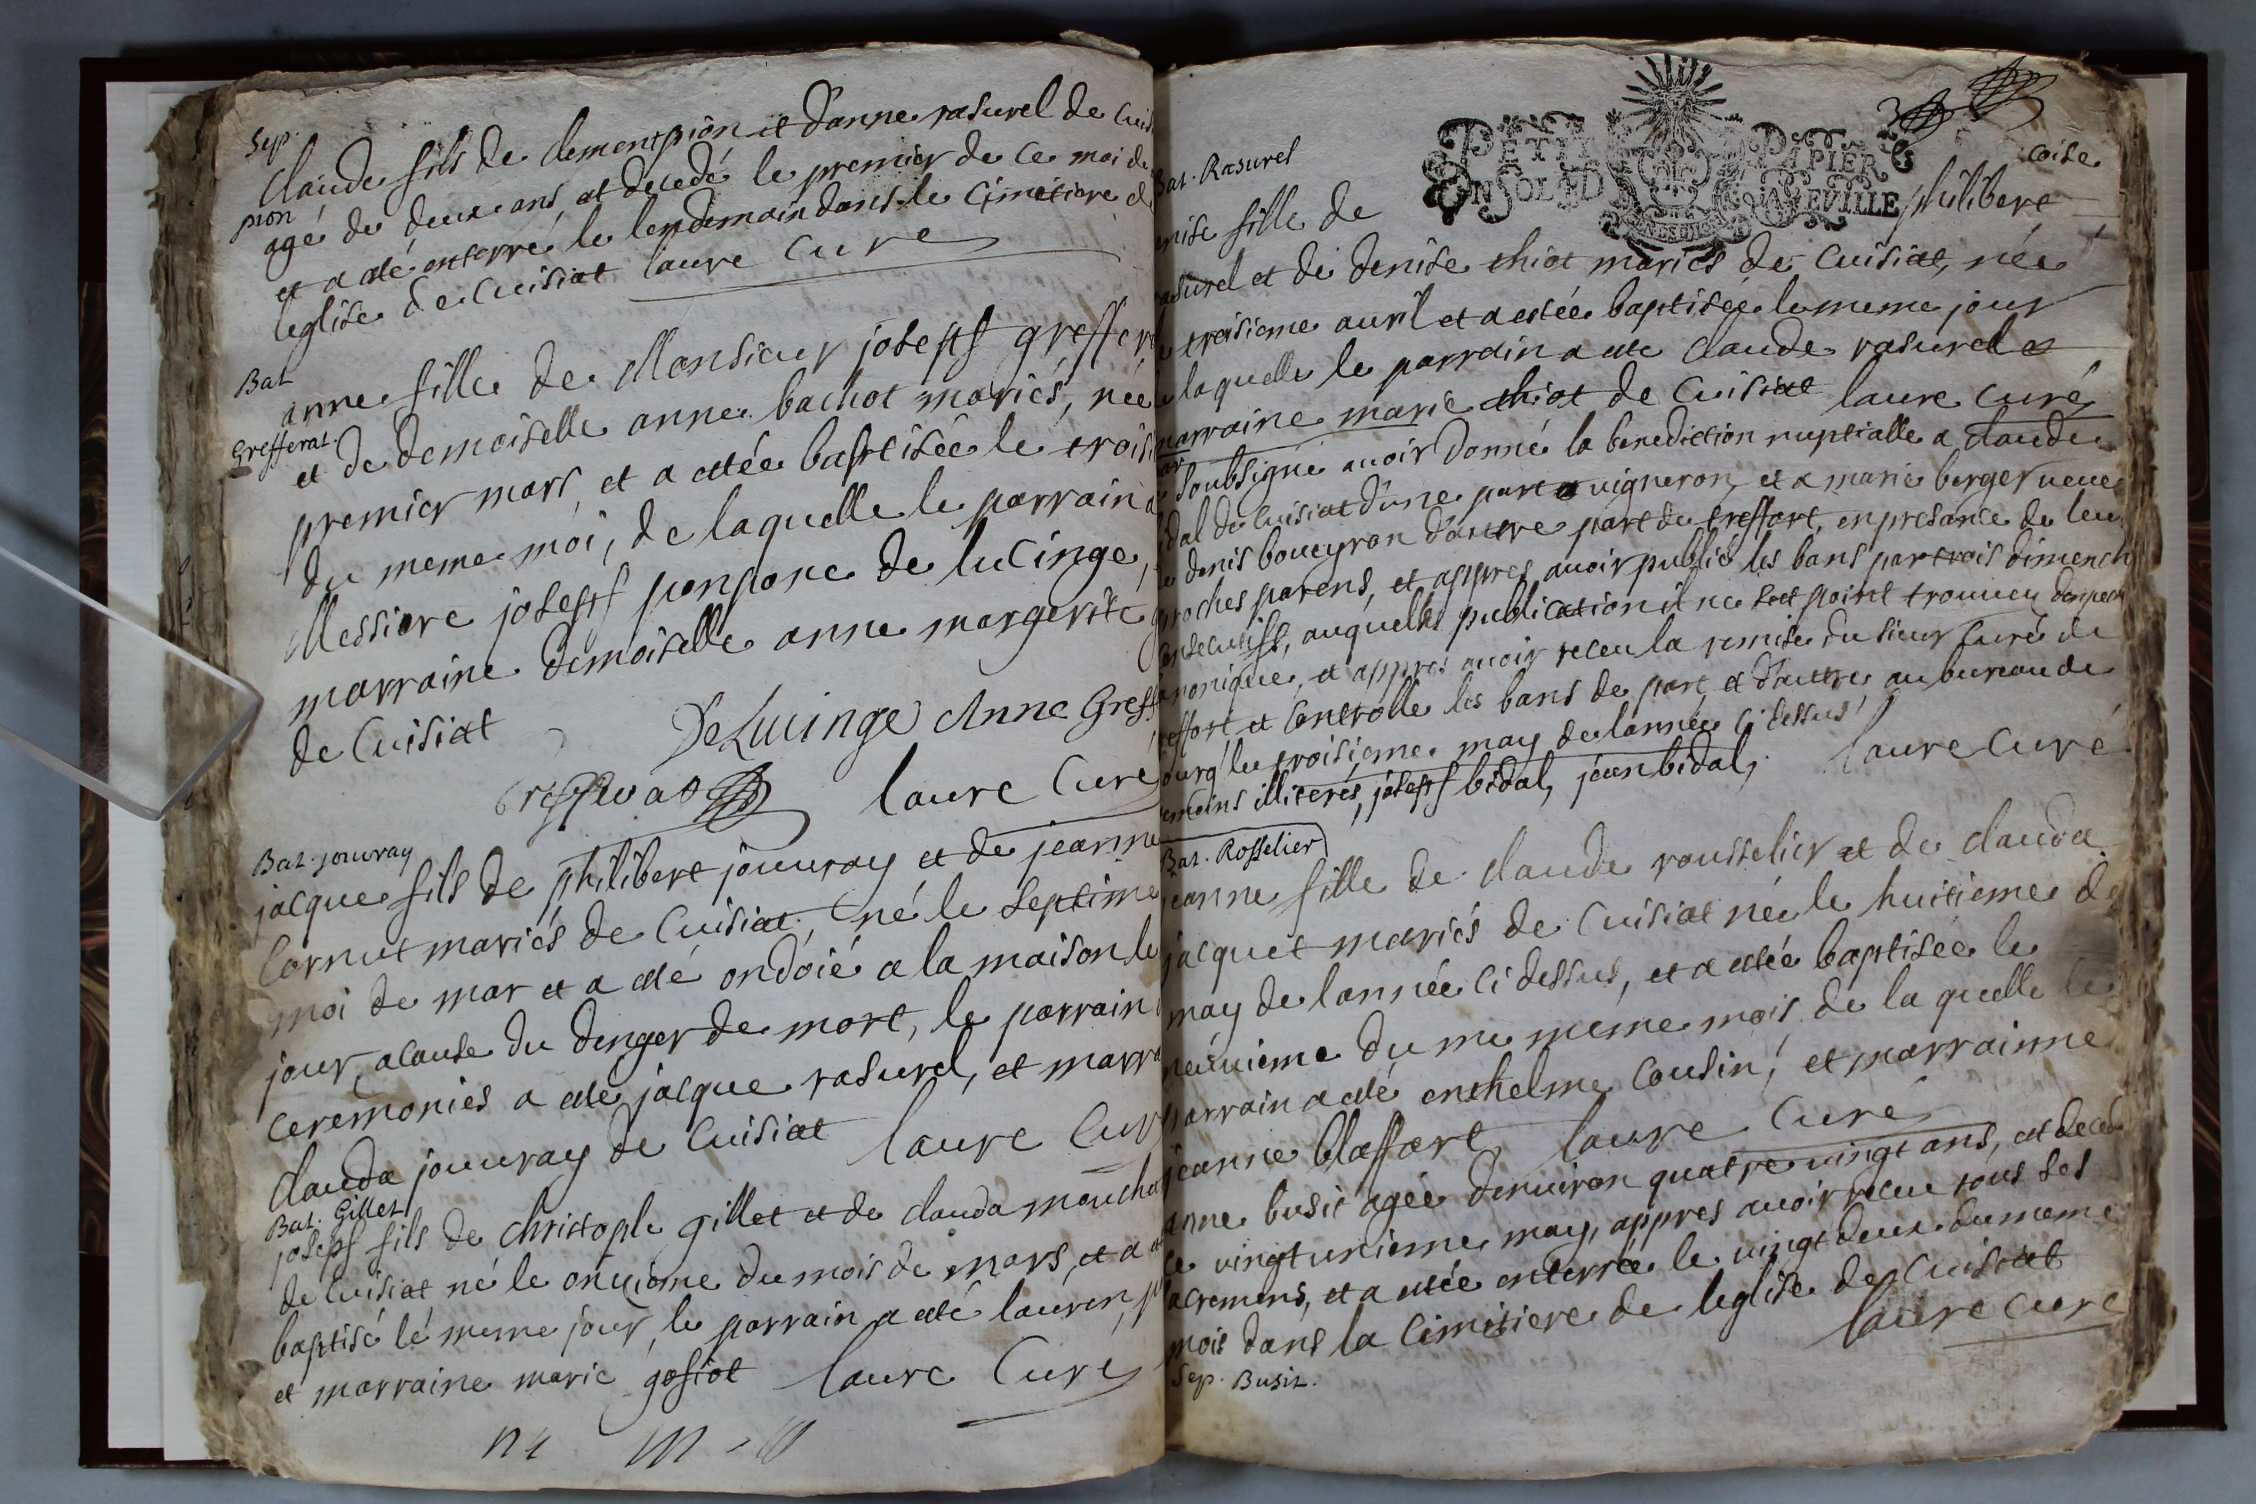 Sep.
claude fils de clement pion et d'anne rasurel de Cuis
pion
agé de deux ans et decedé le premier de ce moi de
et a eté enterré le lendemain dans le Cimetiere de
leglise de Cuisiat laure Curé
Bat
anne fille de Monsieur joseph greffera
Grefferat
et de demoiselle anne bachot mariés, née
premier mars, et a etée baptisée le trois
du meme moi, de laquelle le parrain a
Messiere joseph ponpone de lucinge,
marraine demoiselle anne margerite g
de Cuisiat
DeLucinge Anne Greff
Grefferat laure Curé
Bat. jouvray
jacque fils de philibert jouvray et de jeanne
Cornut mariés de Cuisiat, né le septime
moi de mar et a eté ondoié a la maison le
jour, a cause du denger de mort, le parrain
ceremonies a eté jacque rasurel, et marra
clauda jouvray de Cuisiat laure Cur
Bat. Gillet
joseph fils de christople gillet et de clauda moucha
de Cuisiat né le onzieme du mois de mars, et a
baptisé le meme jour, le parrain a eté lauren
et marraine marie gosiot laure Curé
Bat. Rasurel
PETIT PAPIER
EN SOL LD LA FEVILLE
coise
enise fille de philibert
asurel et de denise chiot mariés de Cuisiat, née
troisieme auril et a estée baptisée le meme jour
laquelle le parrain a ete claude rasurel et
marraine marie chiot de Cuisiat laure Curé
ar
soubsigné auoir donné la benediction nuptialle a claude
idal de Cuisiat d'une part vigneron, et a marie berger veuve
denis boueyron d'autre part de treffort, en presance de leu
proches parens, et appres auoir publié les bans par trois dimench
onsecutifs, auquelle publication il ne s'est point trouueu d'enpe
anonique, et appres auoir receu la remise du sieur Curé de
effort et Controlle les bans de part et d'autre au bureau de
ourg le troisieme may de lannée Ci dessus
emoins illiterés, joseph bidal, jean bidal, laure Curé
Bat. Rosselier
jeanne fille de claude rousselier et de clauda
jacquet mariés de Cuisiat née le huitieme de
may de lannée Ci dessus, et a etée baptisée le
neuuieme du me meme mois, de la quelle le
parrain a eté enthelme Cousin, et marrainne
jeanne blaffart laure Curé
anne busit agée d'enuiron quatre vingt ans, et decedé
le vingt unieme may, appres auoir receu tous ses
acremens, et a etée enterrée le vingt deux du meme
mois dans la Cimitiere de leglise de Cuisiat
laure Curé
Sep. Busit.